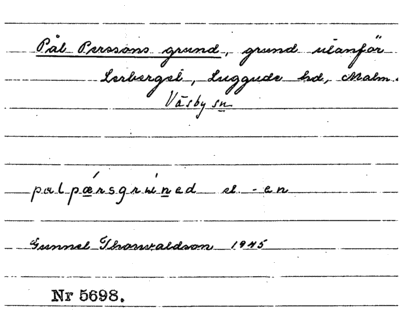 Pål Perssons grund, grund utanför
Lerberget, Luggude hd, Malm.
Väsby sn
palpærsgruned el -en
Gunnel Thorwaldson 1945
Nr 5698.